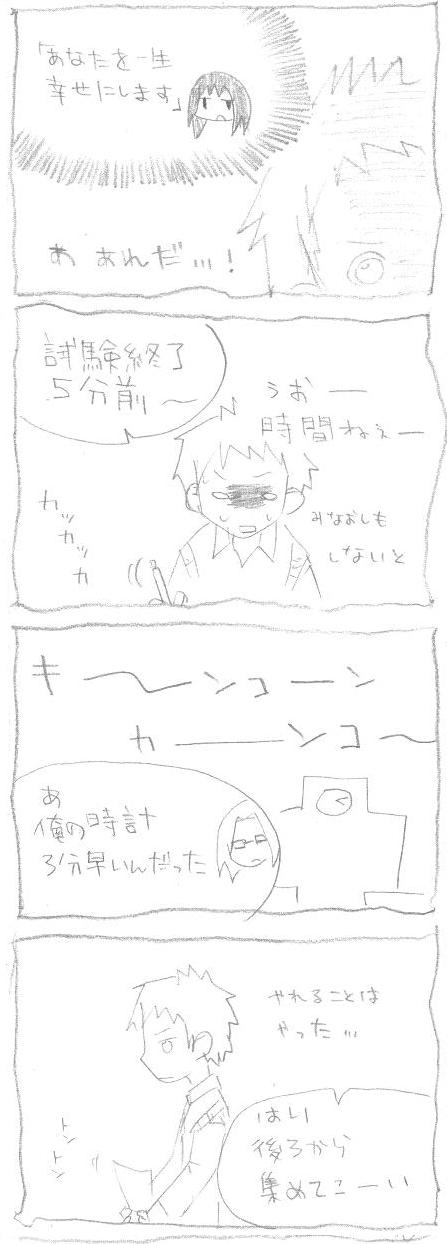 「あなたを一生
幸せにします」
あ あれだ…!
試験終了
5分前〜
うおー
時間ねぇー
みなおしも
しないと
カッ
カッ
カ
キー〜ンコーン
カ――ンコ〜
あ
俺の時計
3分早いんだった
やれることは
やった…
トン
トン
はい
後ろから
集めてこーい